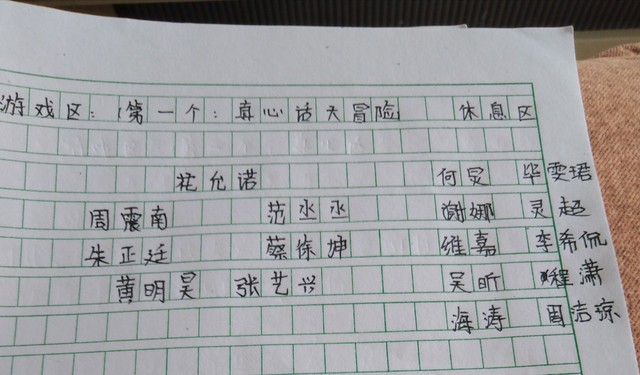 游戏区:(第一个:真心话大冒险 休息区
花允诺 何炅 毕雯珺
周震南 范丞丞 谢娜 灵超
朱正廷 蔡徐坤 维嘉 李希侃
黄明昊 张艺兴 吴昕 程潇
海涛 周洁琼